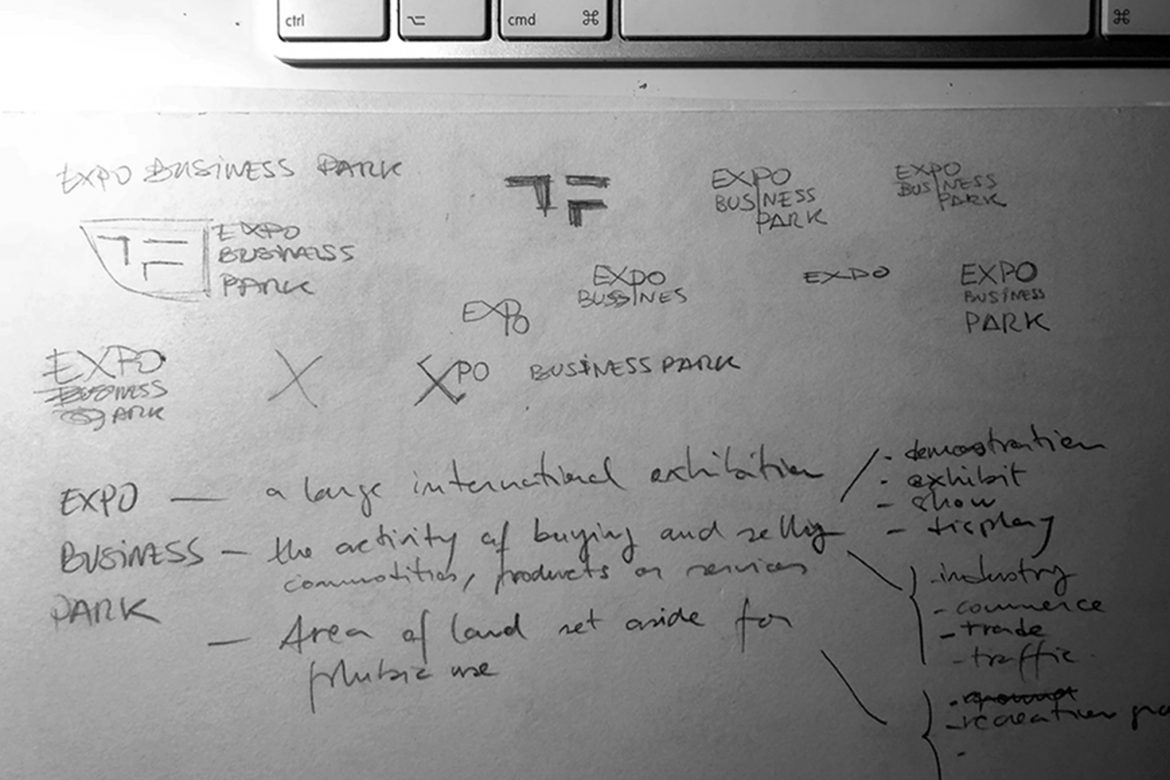 ctrl
⌥
cmd ⌘
⌘
EXPO BUSINESS PARK
EXPO
BUSINESS
PARK
EXPO
BUSINESS
PARK
EXPO
BUSINESS
PARK
EXPO
EXPO
BUSSINES
EXPO
EXPO
BUSINESS
PARK
EXPO
BUSINESS
PARK
X
XPO BUSINESS PARK
EXPO — a large international exhibition
- demonstration
- exhibit
- show
- display
BUSINESS — the activity of buying and selling
commodities, products or services
- industry
- commerce
- trade
- traffic
PARK
— Area of land set aside for
use
- recreation
-